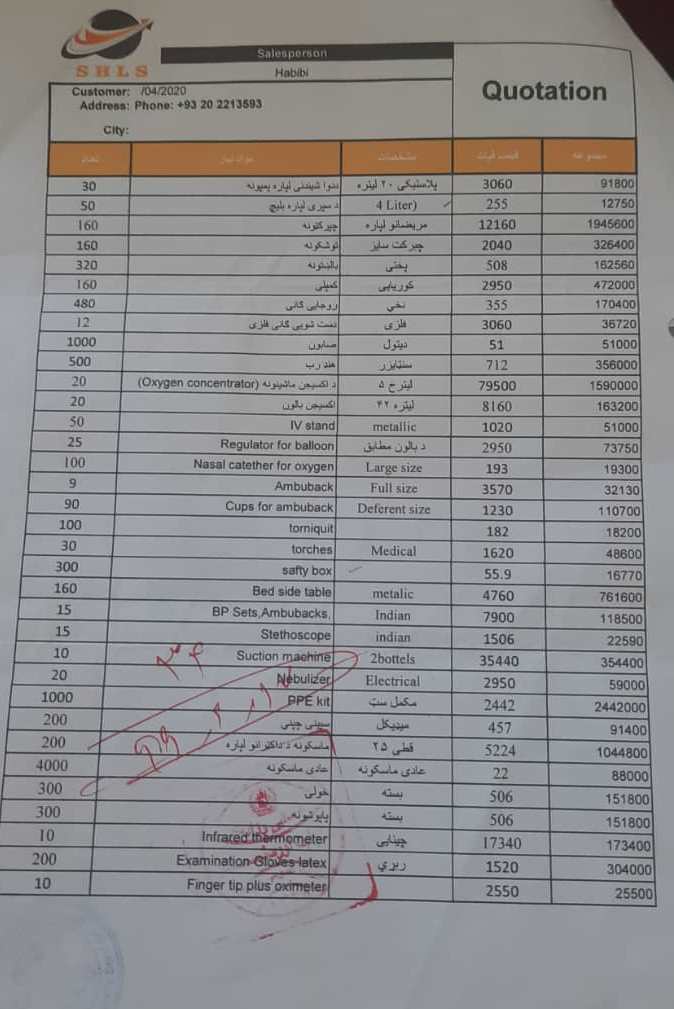 SHLS
Salesperson
Habibi
Quotation
Customer: /04/2020
Address: Phone: +93 20 2213593
City:
تعداد مواد نیاز مشخصات قیمت فیات مجموعه
30 دوا شیندنی لپاره پمپونه پلاستیکی ۲۰ لیتره 3060 91800
50 د سپری لپاره بلیچ 4 Liter) 255 12750
160 چپرکټونه مریضانو لپاره 12160 1945600
160 توشکونه چپرکت سایز 2040 326400
320 بالښتونه پختی 508 162560
160 کمپلی کوریایی 2950 472000
480 روجایی گانی نخي 355 170400
12 دست شویی گانی فلزی فلزی 3060 36720
1000 صابون دیتول 51 51000
500 هند رب سنټایزر 712 356000
20 د اکسیجن ماشینونه (Oxygen concentrator) لیترخ ۵ 79500 1590000
20 اکسیجن بالون لیتره ۴۲ 8160 163200
50 IV stand metallic 1020 51000
25 Regulator for balloon د بالون مطابق 2950 73750
100 Nasal catether for oxygen Large size 193 19300
9 Ambuback Full size 3570 32130
90 Cups for ambuback Deferent size 1230 110700
100 torniquit 182 18200
30 torches Medical 1620 48600
300 safty box 55.9 16770
160 Bed side table metalic 4760 761600
15 BP Sets,Ambubacks, Indian 7900 118500
15 Stethoscope indian 1506 22590
10 Suction machine 2bottels 35440 354400
20 Nebulizer Electrical 2950 59000
1000 PPE kit مکمل سټ 2442 2442000
200 سپلی چپنی میډیکل 457 91400
200 ماسکونه د داکترانو لپاره قطی ۲۵ 5224 1044800
4000 عادی ماسکونه عادی ماسکونه 22 88000
300 خولی بسته 506 151800
300 پاپوشونه بسته 506 151800
10 Infrared thermometer چینایی 17340 173400
200 Examination Gloves latex ربړي 1520 304000
10 Finger tip plus oximeter 2550 25500